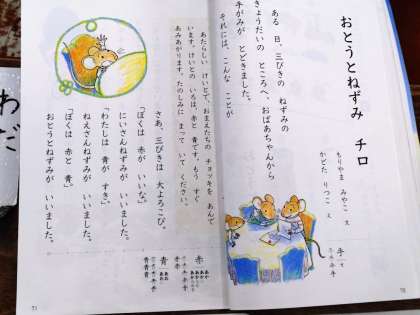 おとうとねずみ チロ
もりやま みやこ 文
かどた りつこ 絵
ある 日、三びきの ねずみの
きょうだいの ところへ、おばあちゃんから
手がみが とどきました。
それには、こんな ことが
手
70
あたらしい けいとで、おまえたちの チョッキを あんで
います。けいとの いろは、赤と 青です。もう すぐ
あみあがります。たのしみに まって いて ください。
さあ、三びきは 大よろこび。
「ぼくは 赤が いいな。」
にいさんねずみが いいました。
「わたしは 青が すき。」
ねえさんねずみが いいました。
「ぼくは 赤と 青。」
おとうとねずみが いいました。
赤
青
71
わだ